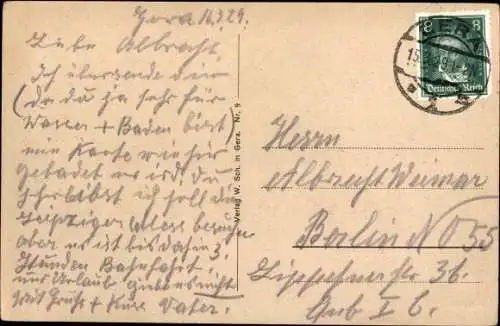 Gera 16.3.29.
Liebe Albrecht
Ich übersende dir
(da du ja sehr für
Wasser + Baden bist)
eine Karte wie hier
gebadet wird, du
schreibst ich soll die
Leipziger Messe besuchen
aber es ist bis dahin 3
Stunden Bahnfahrt,
und Urlaub giebt es nicht
Mit Gruß + Kuss Vater.
Verlag W. Sch. in Gera. Nr. 9
GERA
8 8
Deutsches Reich
Herrn
Albrecht Weimar
Berlin NO 55
Lippehnerstr 36.
Gab I b.